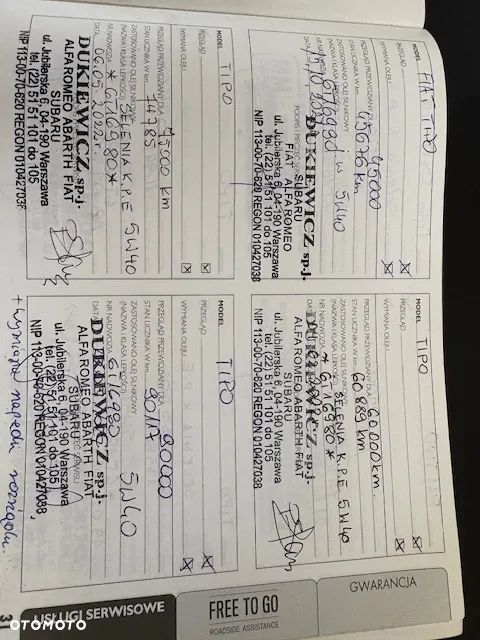 MODEL FIAT TIPO
PRZEGLĄD
WYMIANA OLEJU
PRZEGLĄD PRZEWIDZIANY DLA 45000
STAN LICZNIKA W km 45676 km
ZASTOSOWANO OLEJ SILNIKOWY
(NAZWA I KLASA LEPKOŚCI) 5W40
NR NADWOZIA
DATA
DUKIEWICZ sp.j.
SUBARU
FIAT ALFA ROMEO
ul. Jubilerska 6, 04-190 Warszawa
tel. (22) 51 51 101 do 105
NIP 113-00-70-620 REGON 010427038
MODEL TIPO
PRZEGLĄD
WYMIANA OLEJU
PRZEGLĄD PRZEWIDZIANY DLA 60000 km.
STAN LICZNIKA W km 60889 km
ZASTOSOWANO OLEJ SILNIKOWY
(NAZWA I KLASA LEPKOŚCI) SELENIA K.P.E 5W40
NR NADWOZIA *6J16980*
DUKIEWICZ sp.j.
ALFA ROMEO ABARTH FIAT
SUBARU
ul. Jubilerska 6, 04-190 Warszawa
tel. (22) 51 51 101 do 105
NIP 113-00-70-620 REGON 010427038
MODEL TIPO
PRZEGLĄD
WYMIANA OLEJU
PRZEGLĄD PRZEWIDZIANY DLA 75000 km
STAN LICZNIKA W km 74985
ZASTOSOWANO OLEJ SILNIKOWY
(NAZWA I KLASA LEPKOŚCI) SELENIA K.P.E 5W40
NR NADWOZIA *6J16980*
DATA 06.05.2022r.
DUKIEWICZ sp.j.
ALFA ROMEO ABARTH FIAT
SUBARU
ul. Jubilerska 6, 04-190 Warszawa
tel. (22) 51 51 101 do 105
NIP 113-00-70-620 REGON 010427038
MODEL TIPO
PRZEGLĄD
WYMIANA OLEJU
PRZEGLĄD PRZEWIDZIANY DLA 90000
STAN LICZNIKA W km 90117
ZASTOSOWANO OLEJ SILNIKOWY
(NAZWA I KLASA LEPKOŚCI) 5W40
NR NADWOZIA 6J16980
DATA
DUKIEWICZ sp.j.
ALFA ROMEO ABARTH FIAT
SUBARU
ul. Jubilerska 6, 04-190 Warszawa
tel. (22) 51 51 101 do 105
NIP 113-00-70-620 REGON 010427038
+ wymiana napędu rozrządu.
GWARANCJA
FREE TO GO
ROADSIDE ASSISTANCE
USŁUGI SERWISOWE
31
OTOMOTO